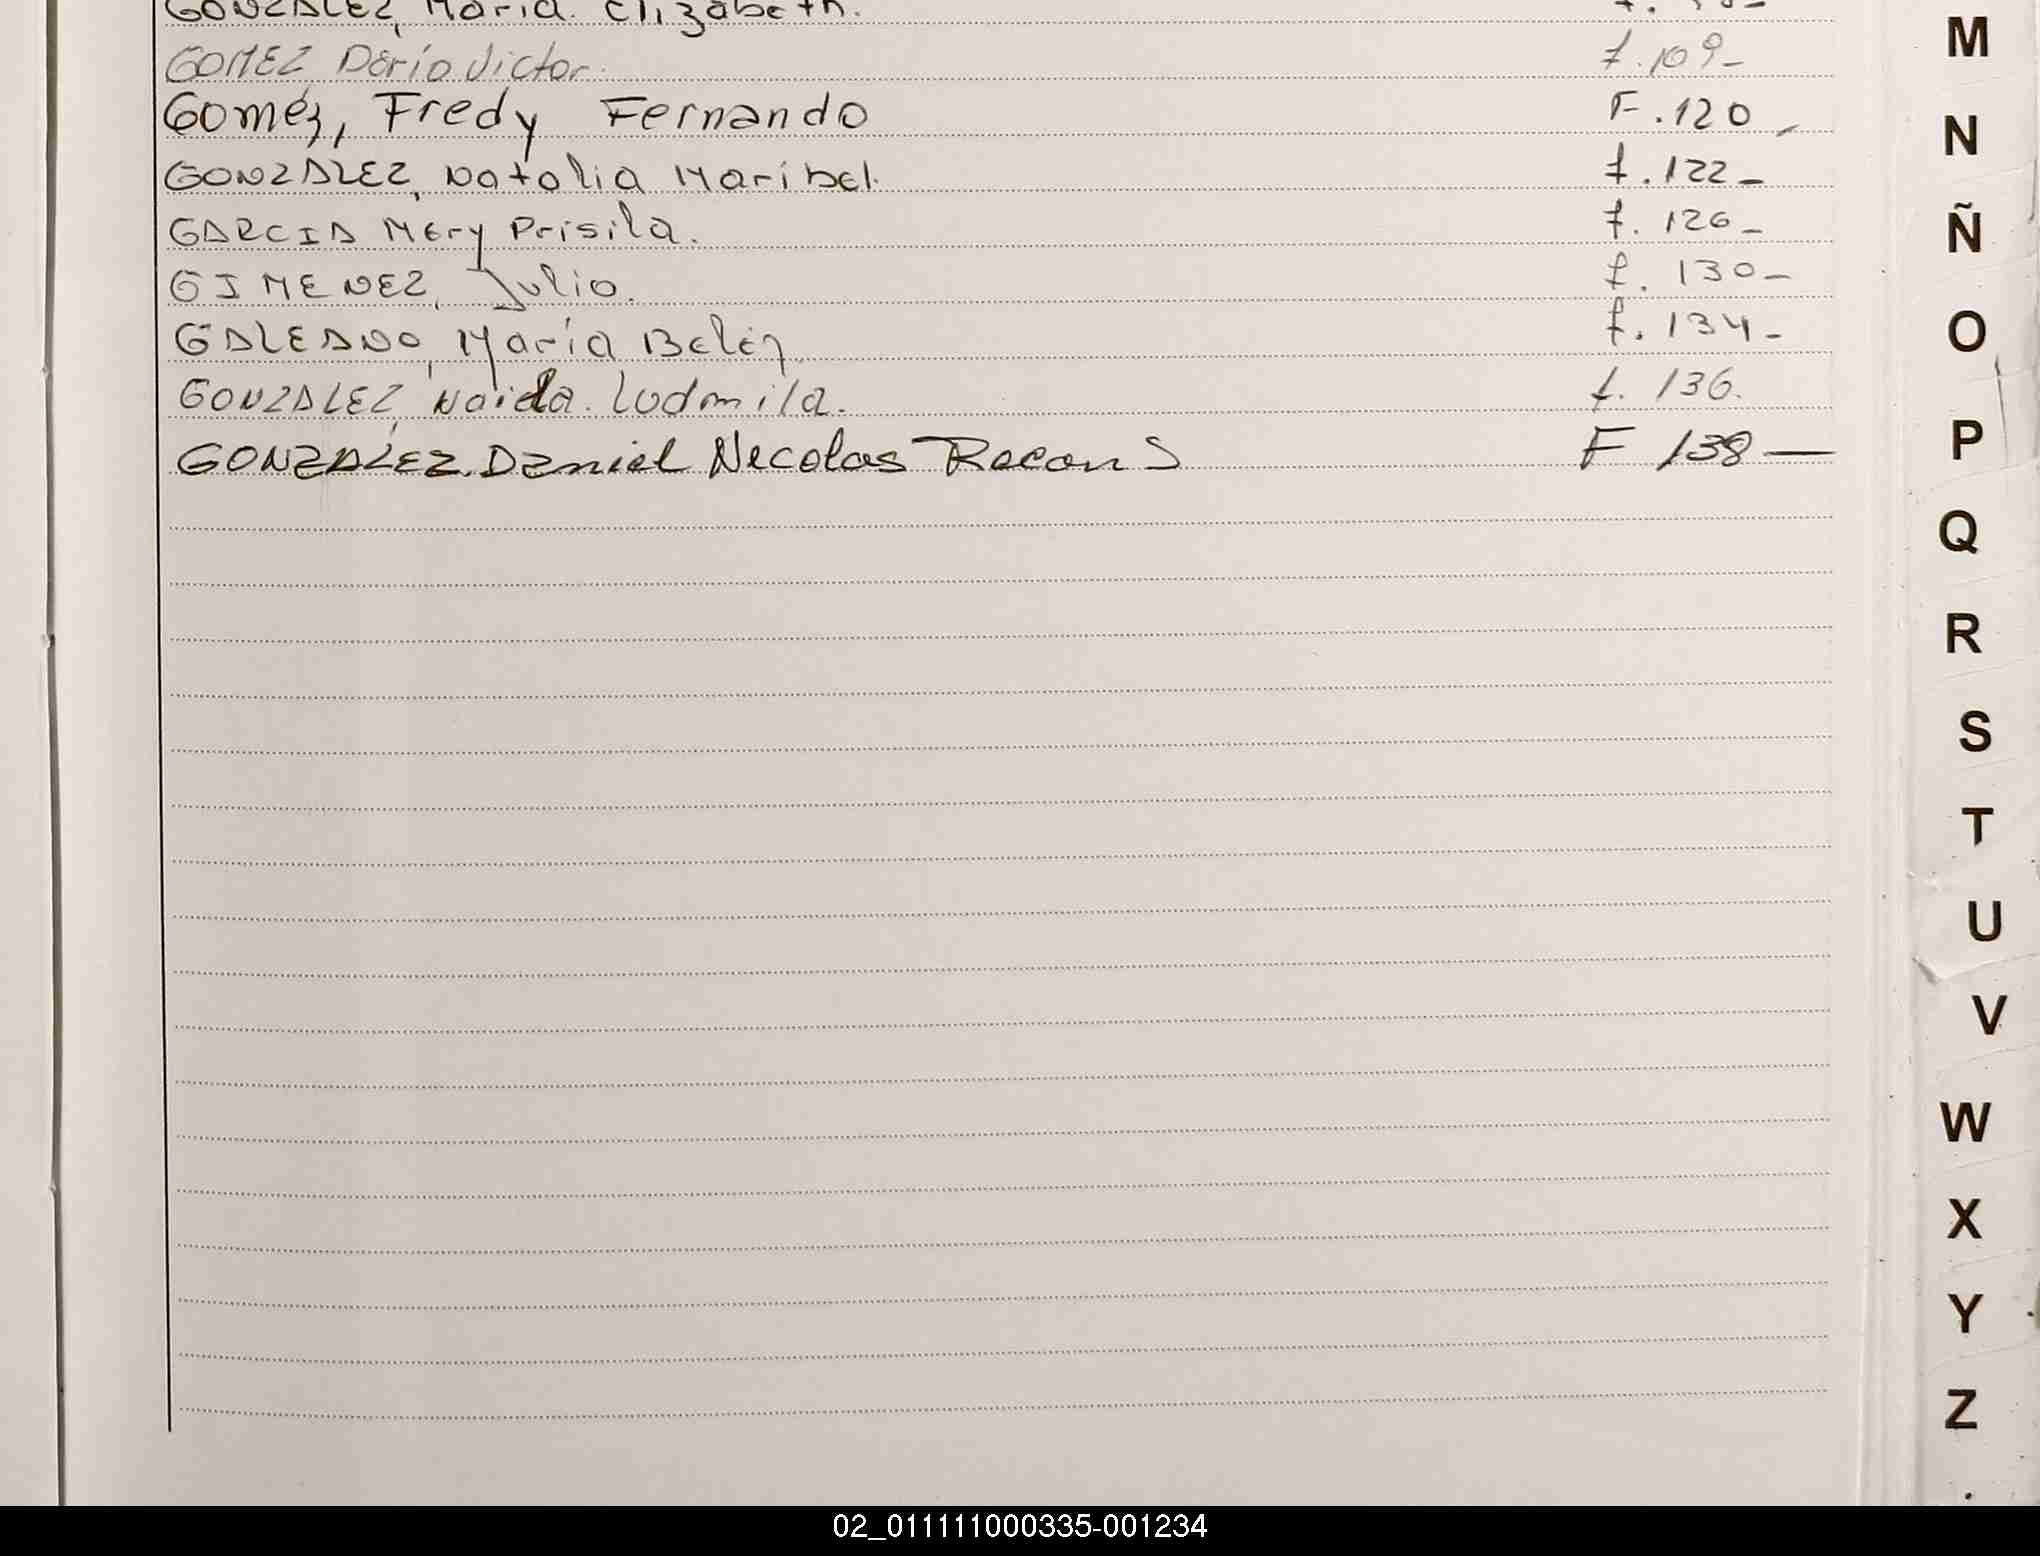 GONZALEZ, María Elizabeth.
GOMEZ Dario Victor. f. 109-
Gomez, Fredy Fernando F. 120-
GONZALEZ, Natalia Maribel. f. 122-
GARCIA Mery Prisila. f. 126-
GIMENEZ, Julio. f. 130-
GALEANO, María Belén f. 134-
GONZALEZ, Naida Ludmila. f. 136.
GONZALEZ. Daniel Necolas F 138-
M
N
Ñ
O
P
Q
R
S
T
U
V
W
X
Y
Z
02_011111000335-001234